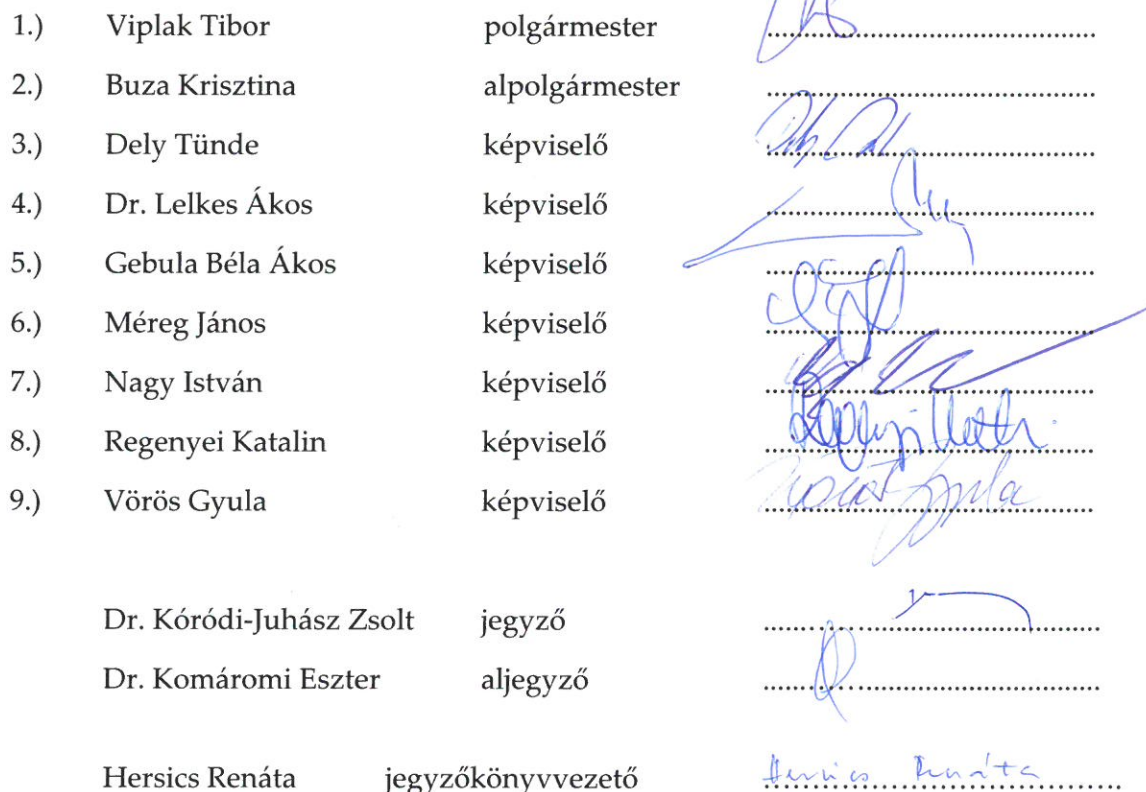 1.) Viplak Tibor polgármester ....................
2.) Buza Krisztina alpolgármester ....................
3.) Dely Tünde képviselő ....................
4.) Dr. Lelkes Ákos képviselő ....................
5.) Gebula Béla Ákos képviselő ....................
6.) Méreg János képviselő ....................
7.) Nagy István képviselő ....................
8.) Regenyei Katalin képviselő ....................
9.) Vörös Gyula képviselő Vörös Gyula
Dr. Kóródi-Juhász Zsolt jegyző ....................
Dr. Komáromi Eszter aljegyző ....................
Hersics Renáta jegyzőkönyvvezető Hersics Renáta